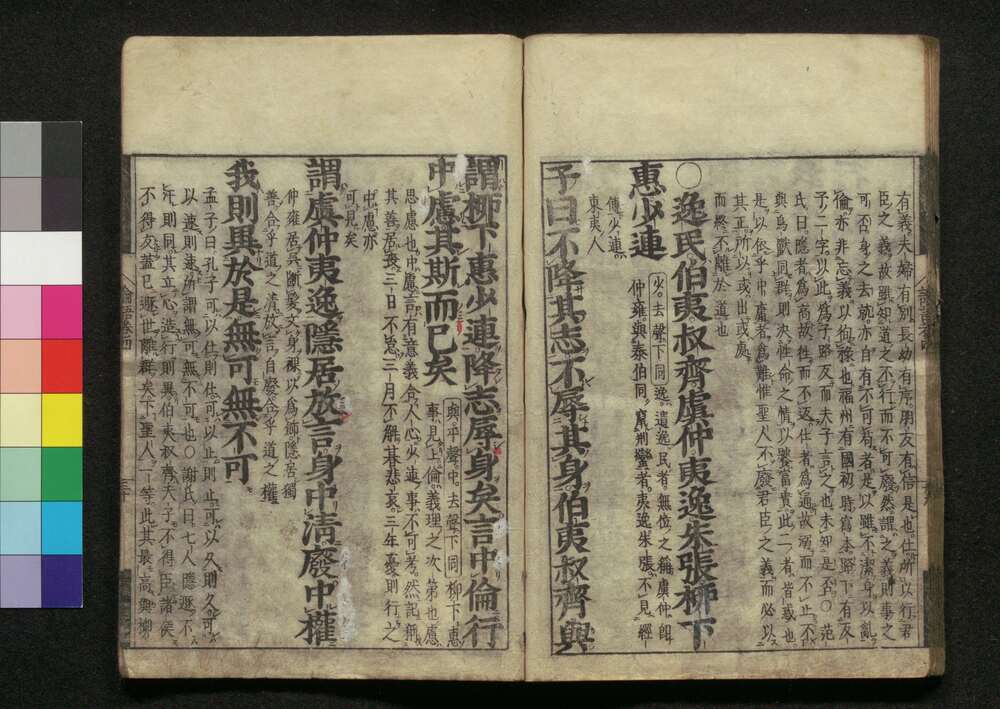 有義夫婦有別長幼有序朋友有信是也仕所以行君
臣之義故雖知道之不行而不可廢然謂之義則事之
可否身之去就亦自有不可苟者是以雖不潔身以亂
倫亦非忘義以徇祿也福州有國初時寫本路下有反
子二字以此爲子路反而夫子言之也未知是否○范
氏曰隱者爲高故往而不返仕者爲通故溺而不止不
與鳥獸同群則決性命之情以饕富貴此二者皆惑也
是以依乎中庸者爲難惟聖人不廢君臣之義而必以
其正所以或出或處
而終不離於道也
○逸民伯夷叔齊虞仲夷逸朱張柳下
惠少連
少去聲下同逸遺逸民者無位之稱虞仲即
仲雍與泰伯同竄荊蠻者夷逸朱張不見經
傳少連
東夷人
子曰不降其志不辱其身伯夷叔齊與
謂柳下惠少連降志辱身矣言中倫行
中慮其斯而已矣
與平聲中去聲下同柳下惠
事見上倫義理之次第也慮
思慮也中慮言有意義合人心少連事不可考然記稱
其善居喪三日不怠三月不解朞悲哀三年憂則行之
中慮亦
可見矣
謂虞仲夷逸隱居放言身中清廢中權
仲雍居吳斷髮文身裸以爲飾隱居獨
善合乎道之清放言自廢合乎道之權
我則異於是無可無不可
孟子曰孔子可以仕則仕可以止則止可以久則久可
以速則速所謂無可無不可也○謝氏曰七人隱遯不
汙則同其立心造行則異伯夷叔齊天子不得臣諸侯
不得友蓋已遯世離群矣下聖人一等此其最高與柳